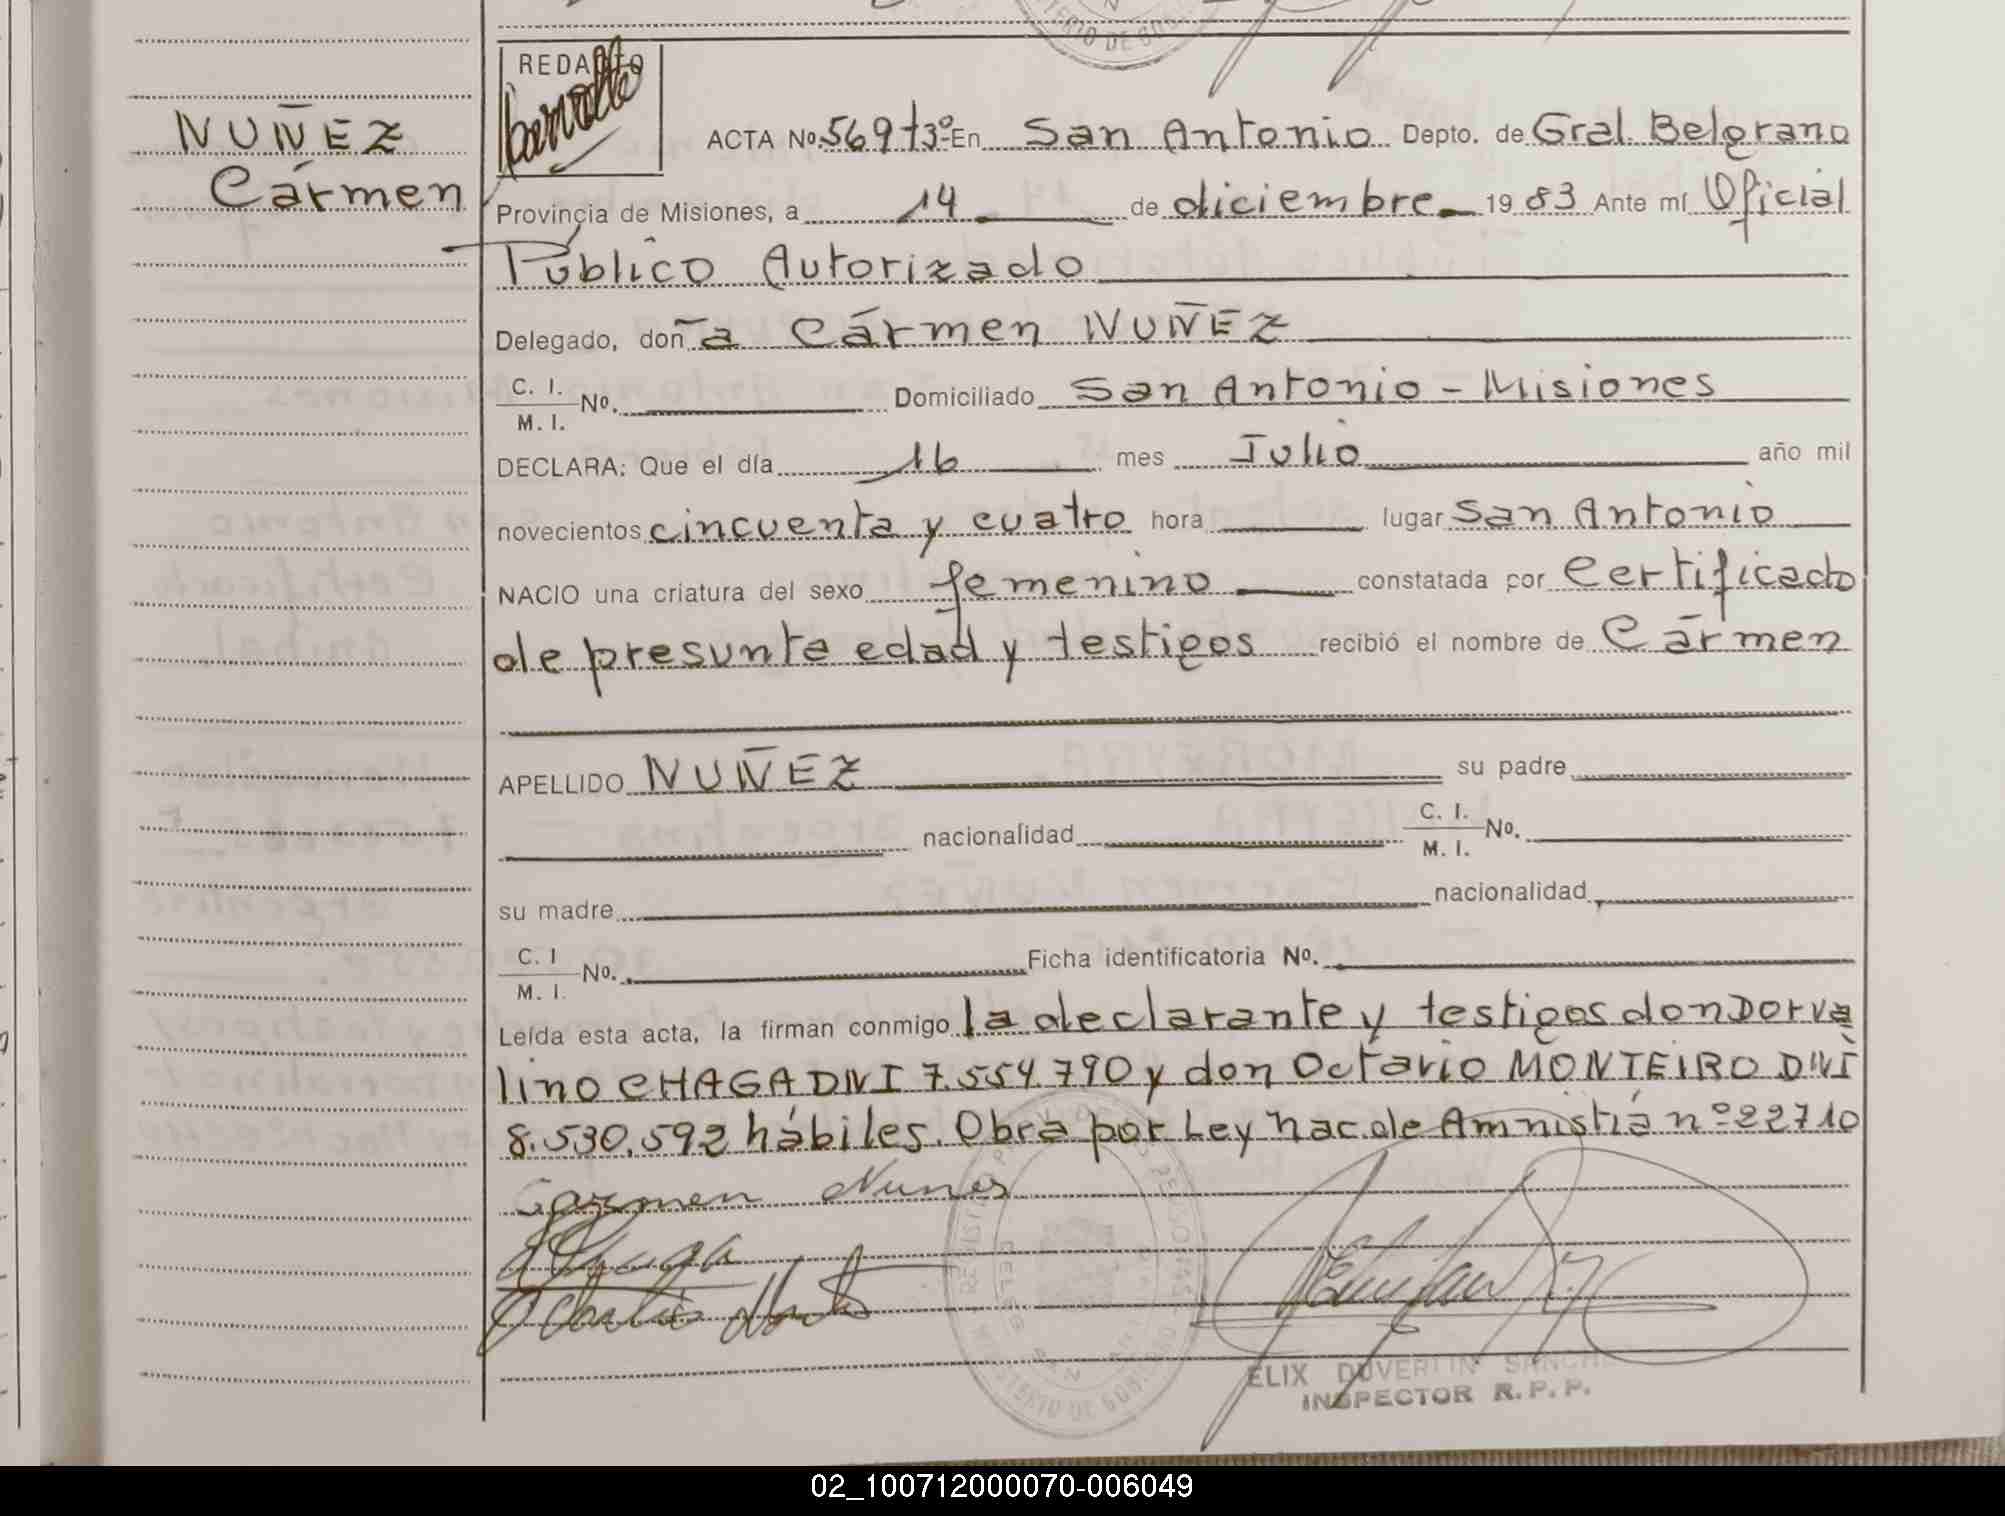 NUÑEZ
Cármen
REDACTO
ACTA Nº 569 t3º En San Antonio Depto. de Gral. Belgrano
Provincia de Misiones, a 14 de diciembre 1983 Ante mí Oficial
Público Autorizado
Delegado, doña Cármen NUÑEZ
C. I.
M. I. Nº. Domiciliado San Antonio - Misiones
DECLARA: Que el día 16 mes Julio año mil
novecientos cincuenta y cuatro hora lugar San Antonio
NACIO una criatura del sexo femenino constatada por Certificado
de presunta edad y testigos recibió el nombre de Cármen
APELLIDO NUÑEZ su padre
nacionalidad C. I.
M. I. Nº.
su madre nacionalidad
C. I
M. I. Nº. Ficha identificatoria Nº.
Leída esta acta, la firman conmigo la declarante y testigos don Dorva
lino CHAGA DNI 7.554.790 y don Octavio MONTEIRO DNI
8.530.592 hábiles. Obra por Ley nac. de Amnistía nº 22710
Carmen Nunes
ELIX DUVERLIN SANCHE
INSPECTOR R.P.P.
02_100712000070-006049